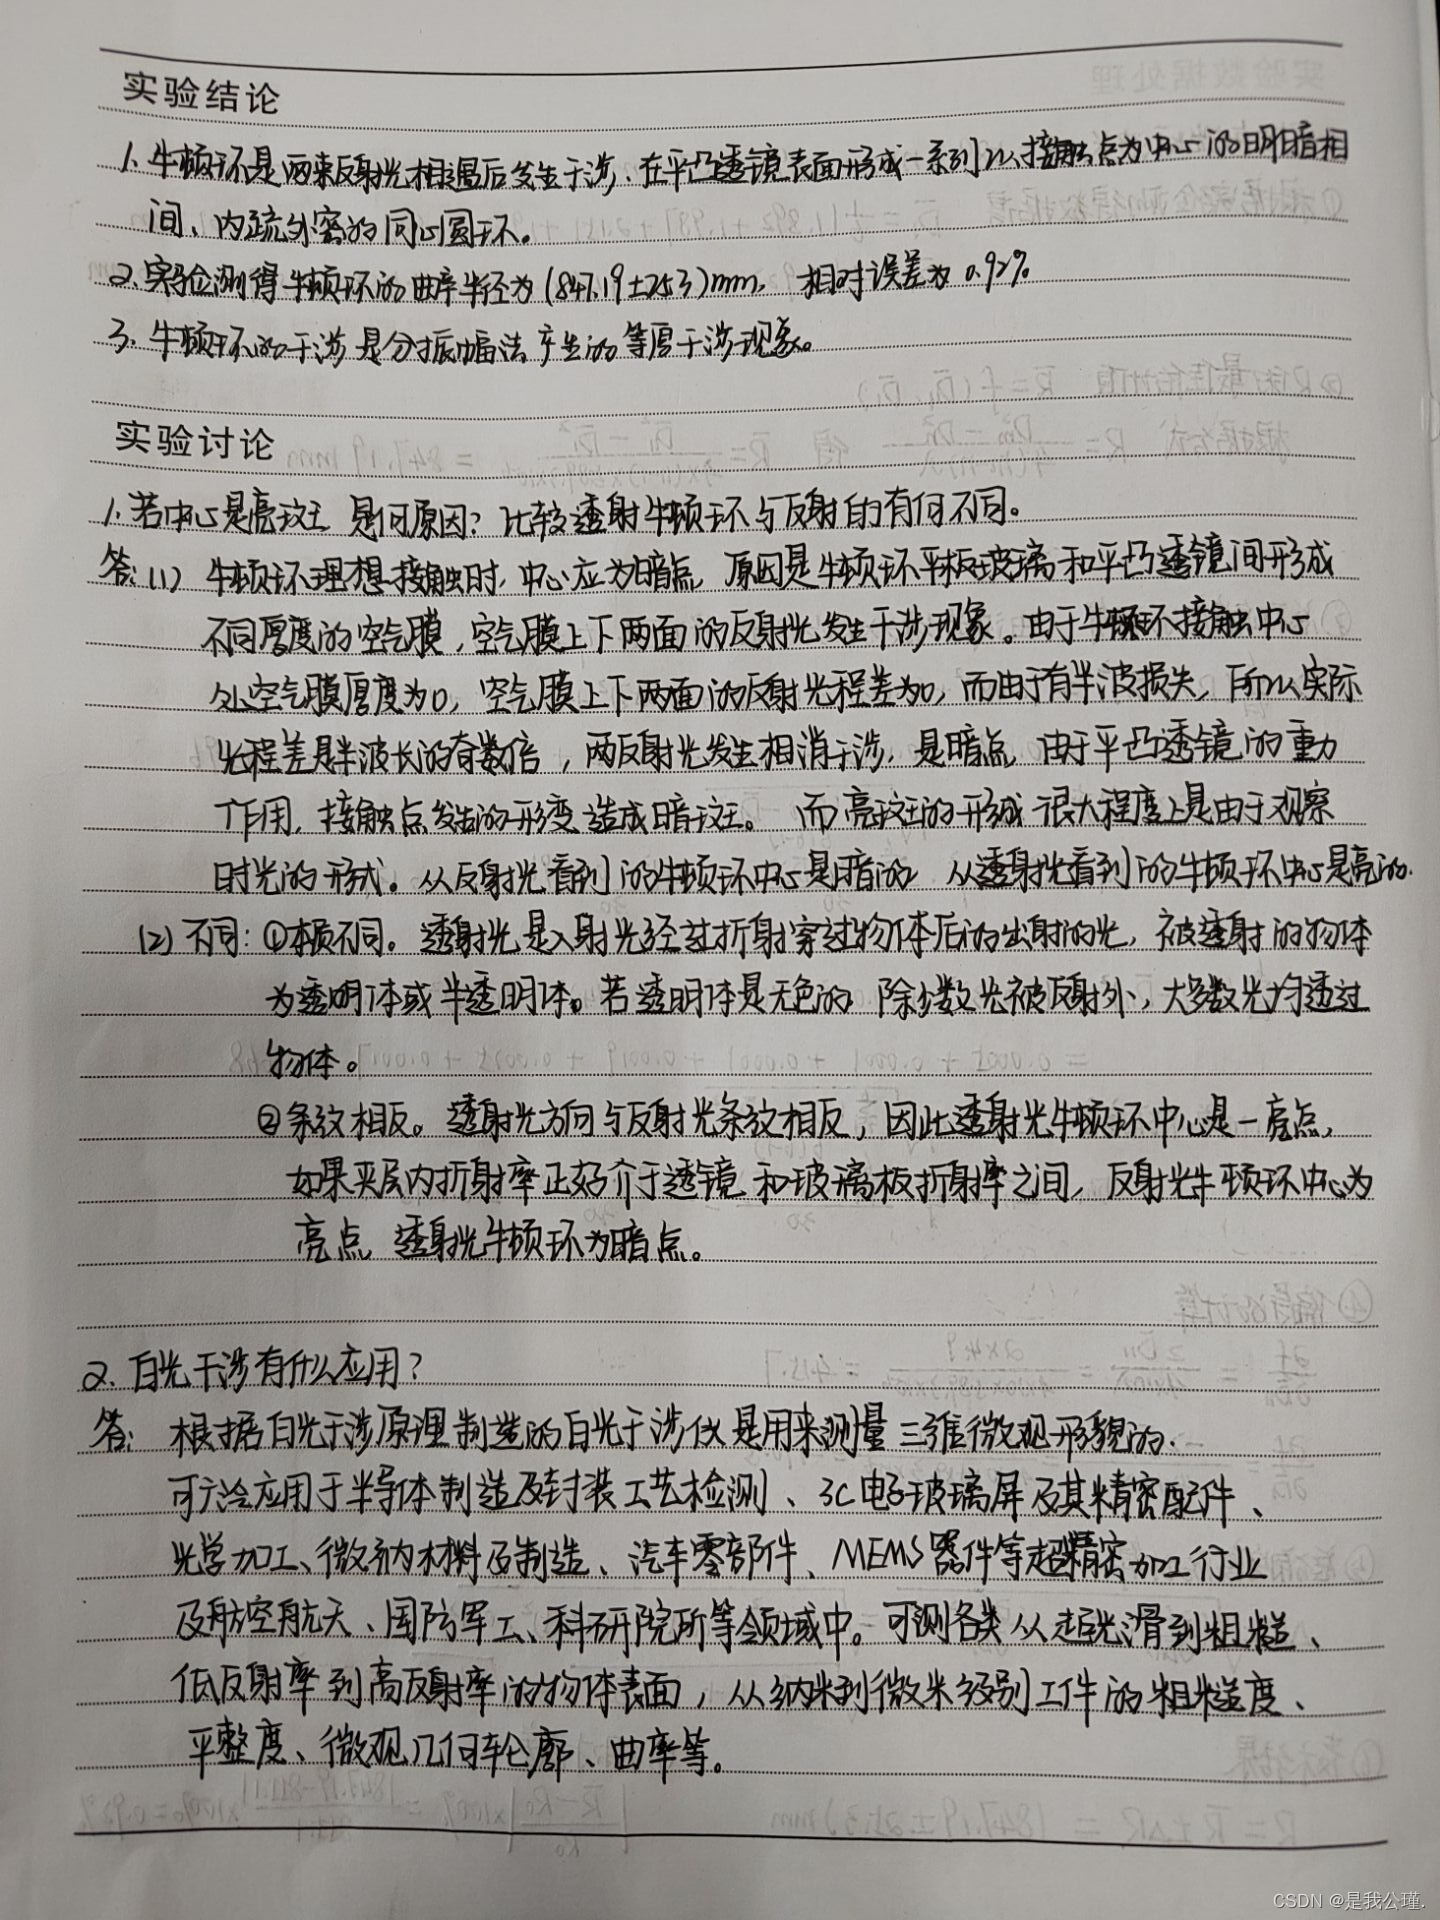 实验结论
1. 牛顿环是两束反射光相遇后发生干涉，在平凸透镜表面形成一系列以接触点为中心的明暗相
间、内疏外密的同心圆环。
2. 实验测得牛顿环的曲率半径为(847.19±25.3)mm，相对误差为0.92%
3. 牛顿环的干涉是分振幅法产生的等厚干涉现象。
实验讨论
1. 若中心是亮斑 是何原因？比较透射牛顿环与反射的有何不同。
答：(1) 牛顿环理想接触时，中心应为暗点，原因是牛顿环平板玻璃和平凸透镜间形成
不同厚度的空气膜，空气膜上下两面的反射光发生干涉现象。由于牛顿环接触中心
处空气膜厚度为0，空气膜上下两面的反射光程差为0，而由于有半波损失，所以实际
光程差是半波长的奇数倍，两反射光发生相消干涉，是暗点，由于平凸透镜的重力
作用，接触点发生的形变造成暗斑。而亮斑的形成很大程度上是由于观察
时光的形式。从反射光看到的牛顿环中心是暗的，从透射光看到的牛顿环中心是亮的.
(2) 不同：①本质不同。透射光是入射光经过折射穿过物体后的出射的光，被透射的物体
为透明体或半透明体。若透明体是无色的 除少数光被反射外，大多数光均透过
物体。
②条纹相反。透射光方向与反射光条纹相反，因此透射光牛顿环中心是一亮点，
如果夹层内折射率正好介于透镜和玻璃板折射率之间，反射光牛顿环中心为
亮点，透射光牛顿环为暗点。
2. 白光干涉有什么应用？
答：根据白光干涉原理制造的白光干涉仪是用来测量三维微观形貌的.
可广泛应用于半导体制造及封装工艺检测、3C电子玻璃屏及其精密配件、
光学加工、微纳材料及制造、汽车零部件、MEMS器件等超精密加工行业
及航空航天、国防军工、科研院所等领域中。可测各类从超光滑到粗糙、
低反射率到高反射率的物体表面，从纳米到微米级别工件的粗糙度、
平整度、微观几何轮廓、曲率等。
CSDN @是我公瑾.